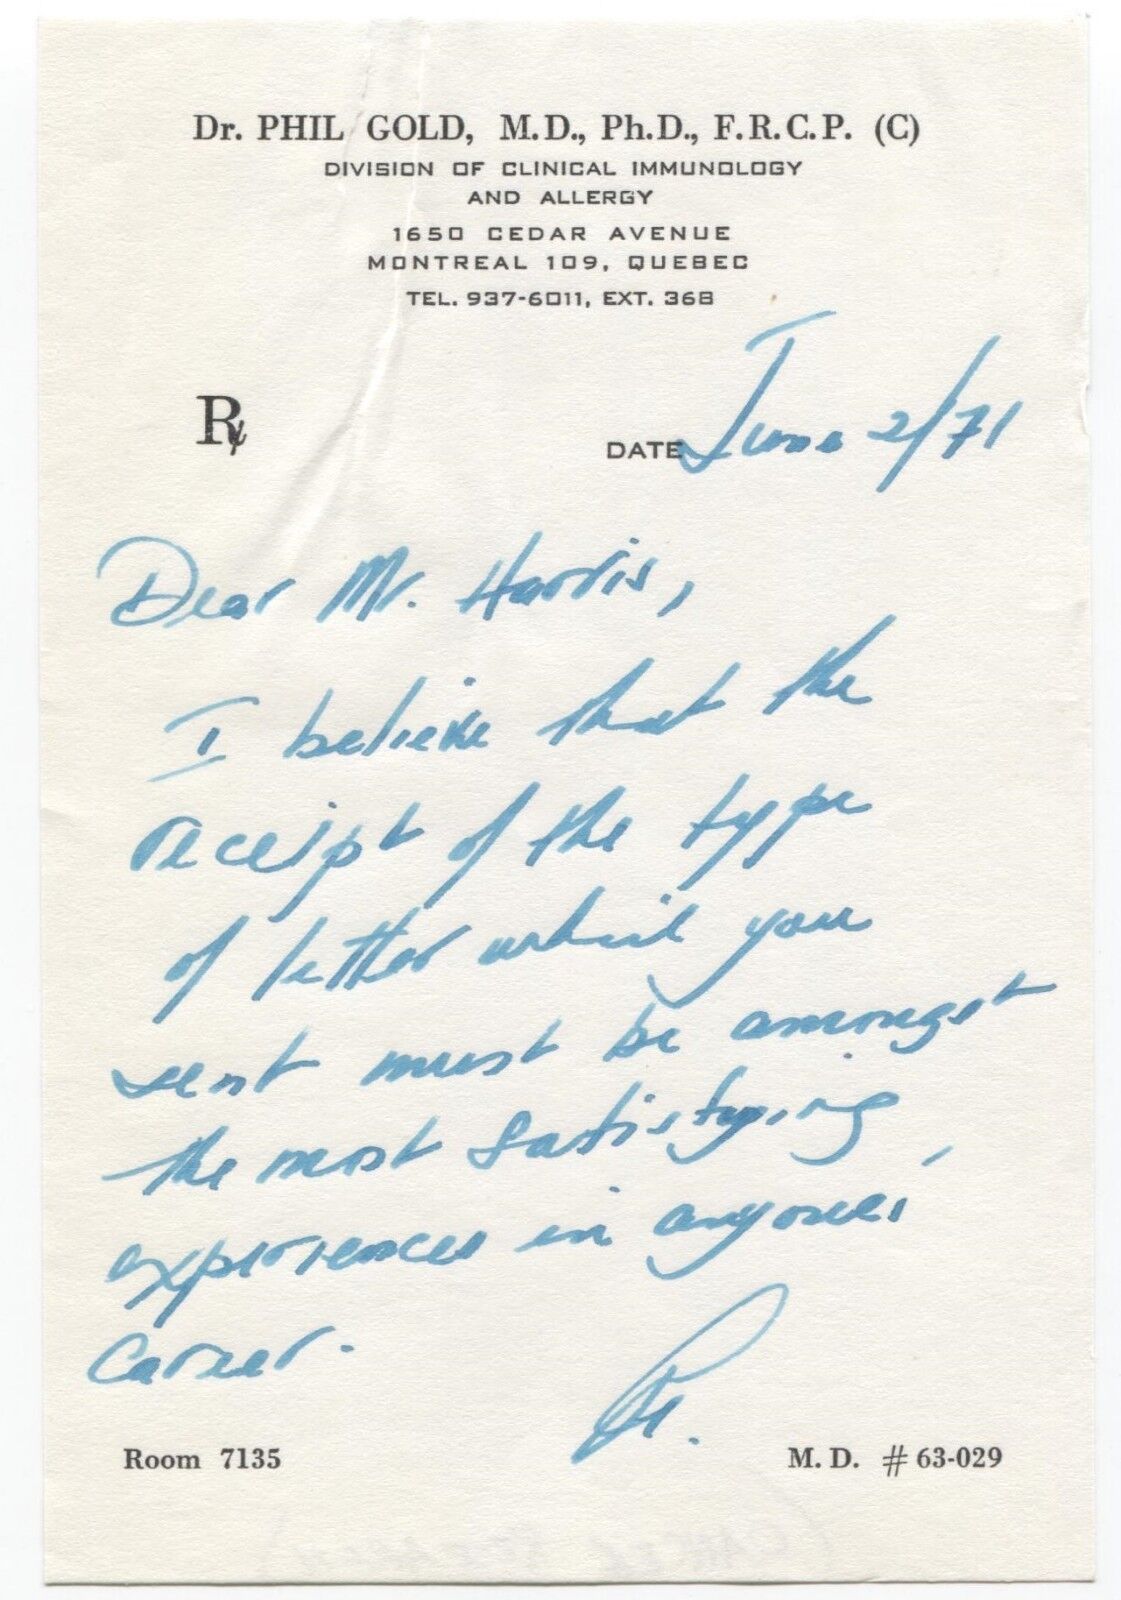 Dr. PHIL GOLD, M.D., Ph.D., F.R.C.P. (C)
DIVISION OF CLINICAL IMMUNOLOGY
AND ALLERGY
1650 CEDAR AVENUE
MONTREAL 109, QUEBEC
TEL. 937-6011, EXT. 368
℞
DATE June 2/71
Dear Mr. Harris,
I believe that the
receipt of the type
of letter which you
sent must be amongst
the most satisfying
experiences in anyone's
career.
Room 7135
M. D. # 63-029
(CANCER RESEARCH)